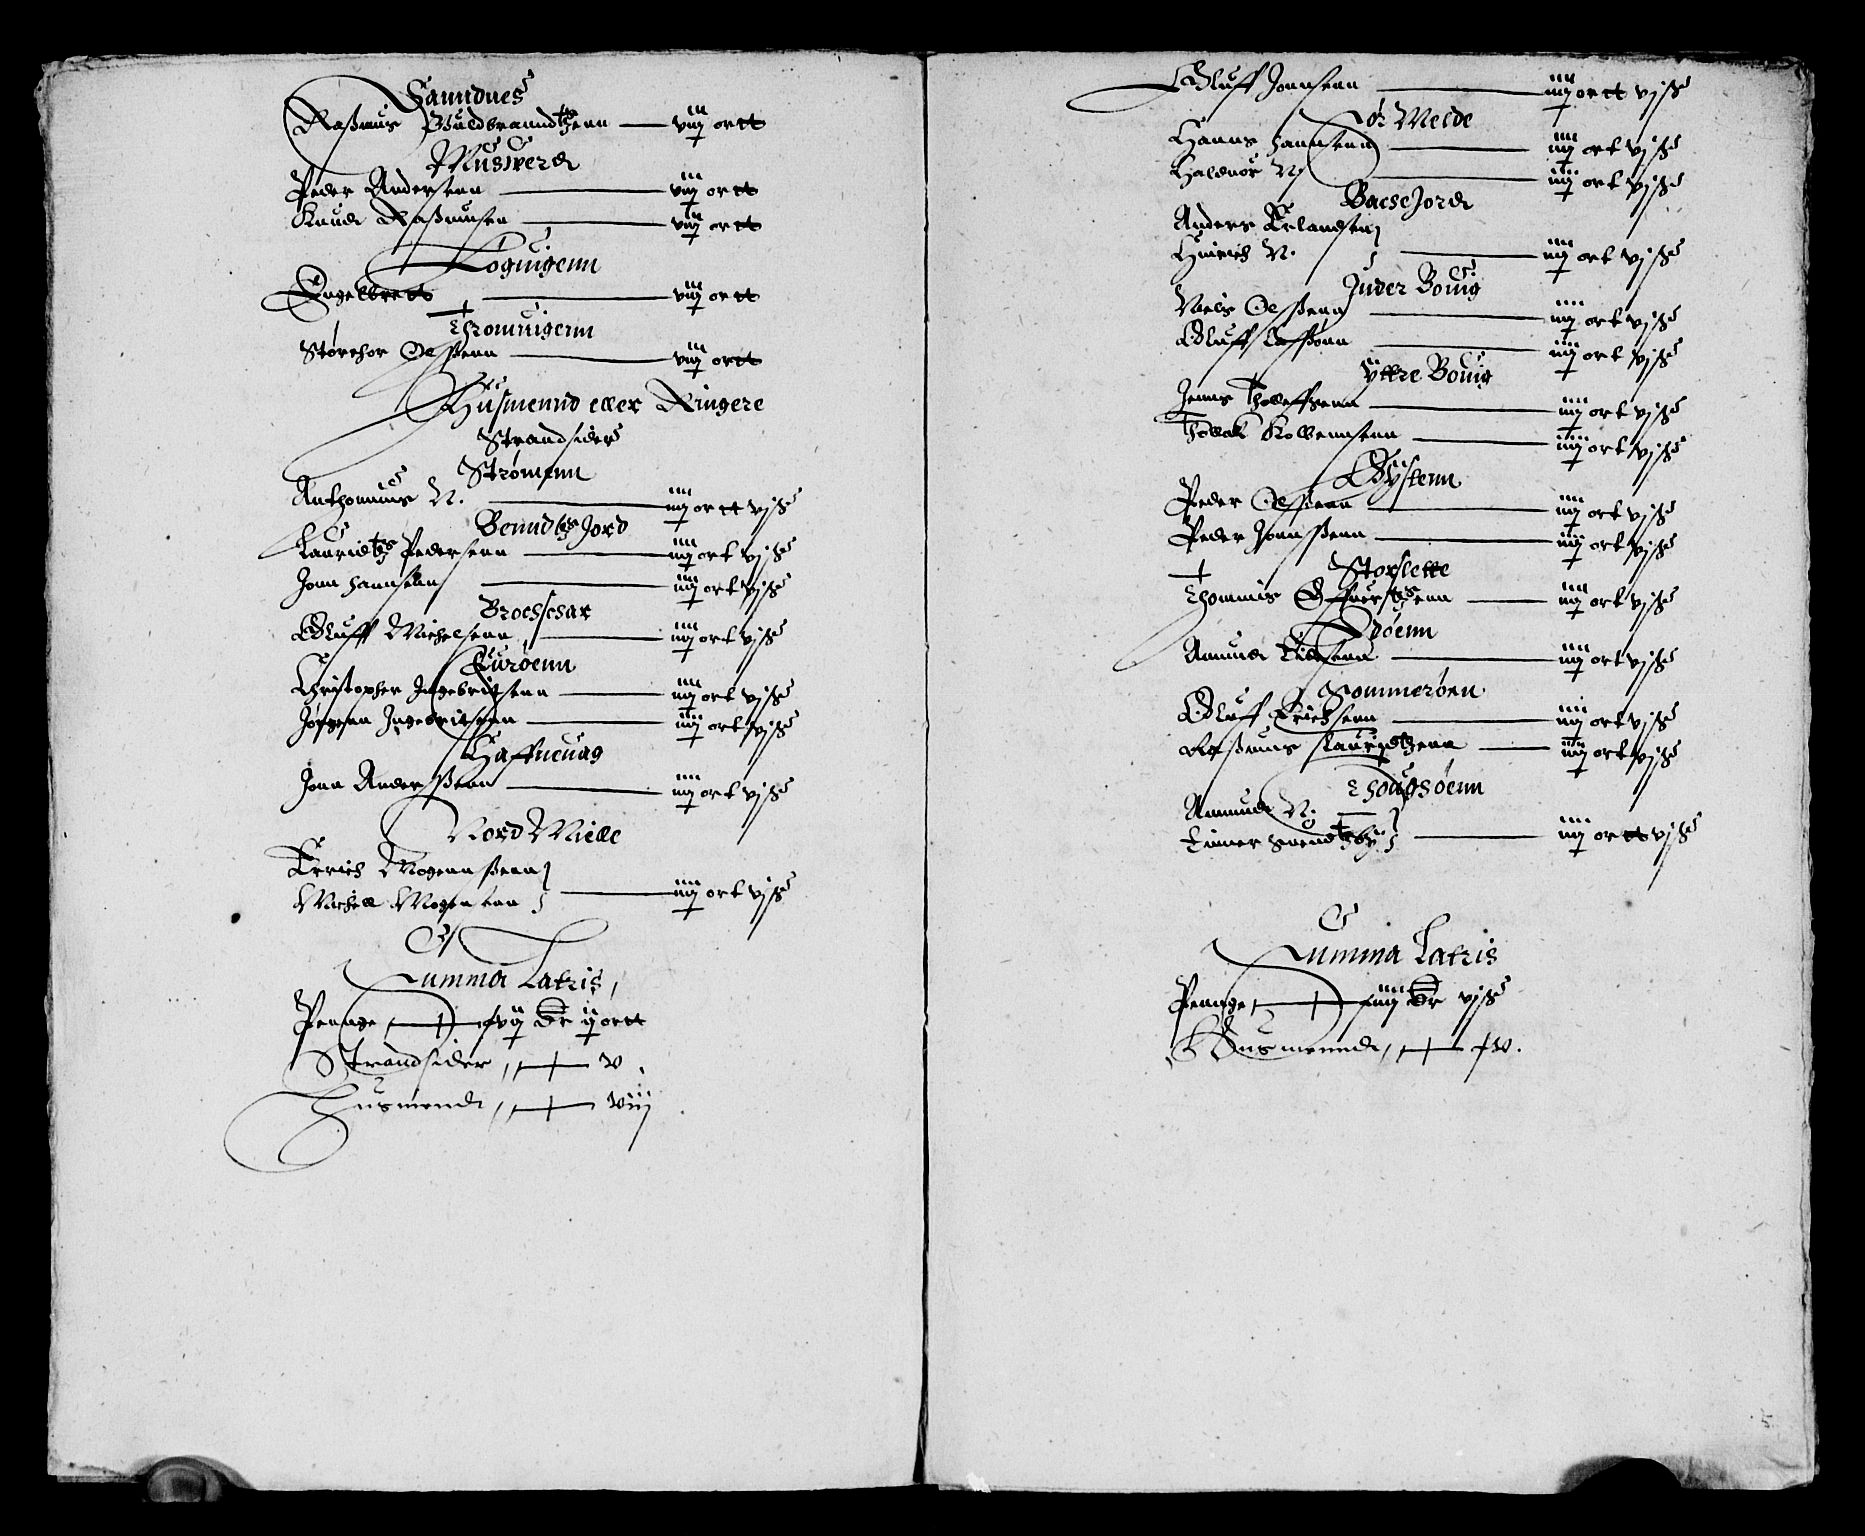 Sanndnes
Rasmus Guldbranndtzenn — viij ortt
Musuerd
Peder Andersenn — viij ortt
Knud Rasmusen — viij ortt
Loguigenn
Engelbrett — viij ortt
Thromuigenn
Storchor Olssenn — viij ortt
Husmennd eller Ringere
Strandsider
Strømenn
Anthonnius N. — iiij ortt vj ß
Benndtz Jord
Lauridtz Pedersenn — iiij ort vj ß
Jonn hannsenn — iiij ort vj ß
Brochschar
Oluff Michelsenn — iiij ort vj ß
Turöenn
Christopher Ingebritsenn — iiij ort vj ß
Jørgenn Ingebritsenn — iiij ort vj ß
Haffneuag
Jonn Anderssenn — iiij ort vj ß
Nord Mielle
Erich Mogennssenn
Michell Mogensenn — iiij ort vj ß
Summa Latris
Pennge — xvij dr ij ortt
Strandsider — v.
Husmend — viij
Oluff Jonnsenn — iiij ortt vj ß
Sør Melde
Hanns hannsenn — iiij ort vj ß
Halduor N — iiij ort vj ß
Balsejord
Anders Erlandsen
Hinrich N. — iiij ort vj ß
Inder Bouig
Niels Olssenn — iiij ort vj ß
Oluff Laffsönn — iiij ort vj ß
Yttre Bouig
Jenns Tholleffsenn — iiij ort vj ß
Tollak Kolbennsenn — iiij ort vj ß
Øystenn
Peder Olssenn — iiij ort vj ß
Peder Jonnssenn — iiij ort vj ß
Storslette
Thommis — iiij ort vj ß
Amund — iiij ort vj ß
Sommeröen
Oluff Erichsenn — iiij ort vj ß
Rasmus Lauridtzenn — iiij ort vj ß
Thougsöenn
Ammund N
Einner Suendtzby — iiij ortt vj ß
Summa Latris
Pennge — xiiij dr vj ß
Husmennd — xv.